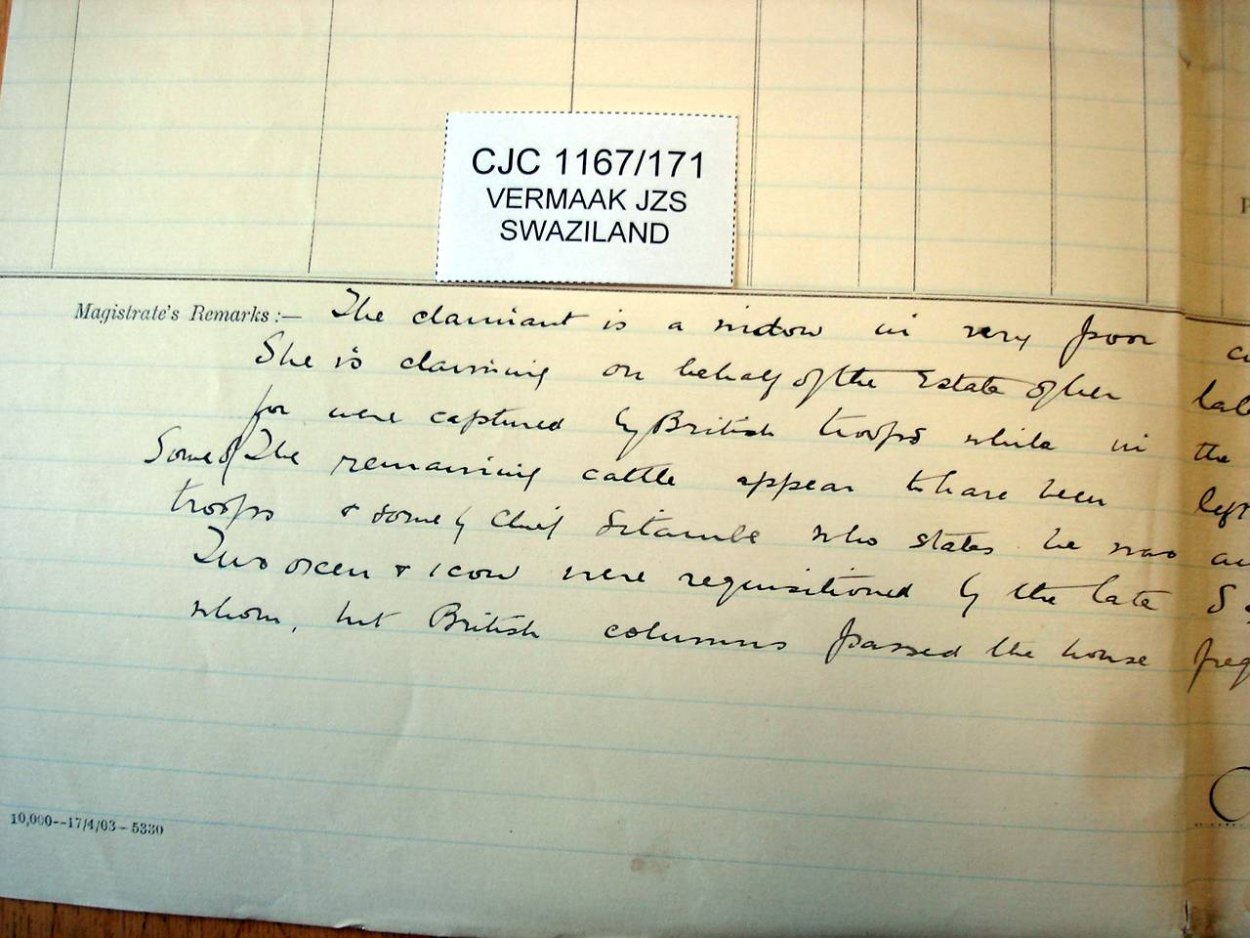 CJC 1167/171
VERMAAK JZS
SWAZILAND
Magistrate's Remarks :— The claimant is a widow in very poor
She is claiming on behalf of the Estate of her
for were captured by British troops while in the
Some of the remaining cattle appear to have been left
troops & some by Chief Sitambe who states he was
Two oxen & 1 cow were requisitioned by the late
whom, but British columns passed the house
10,000--17/4/03--5330